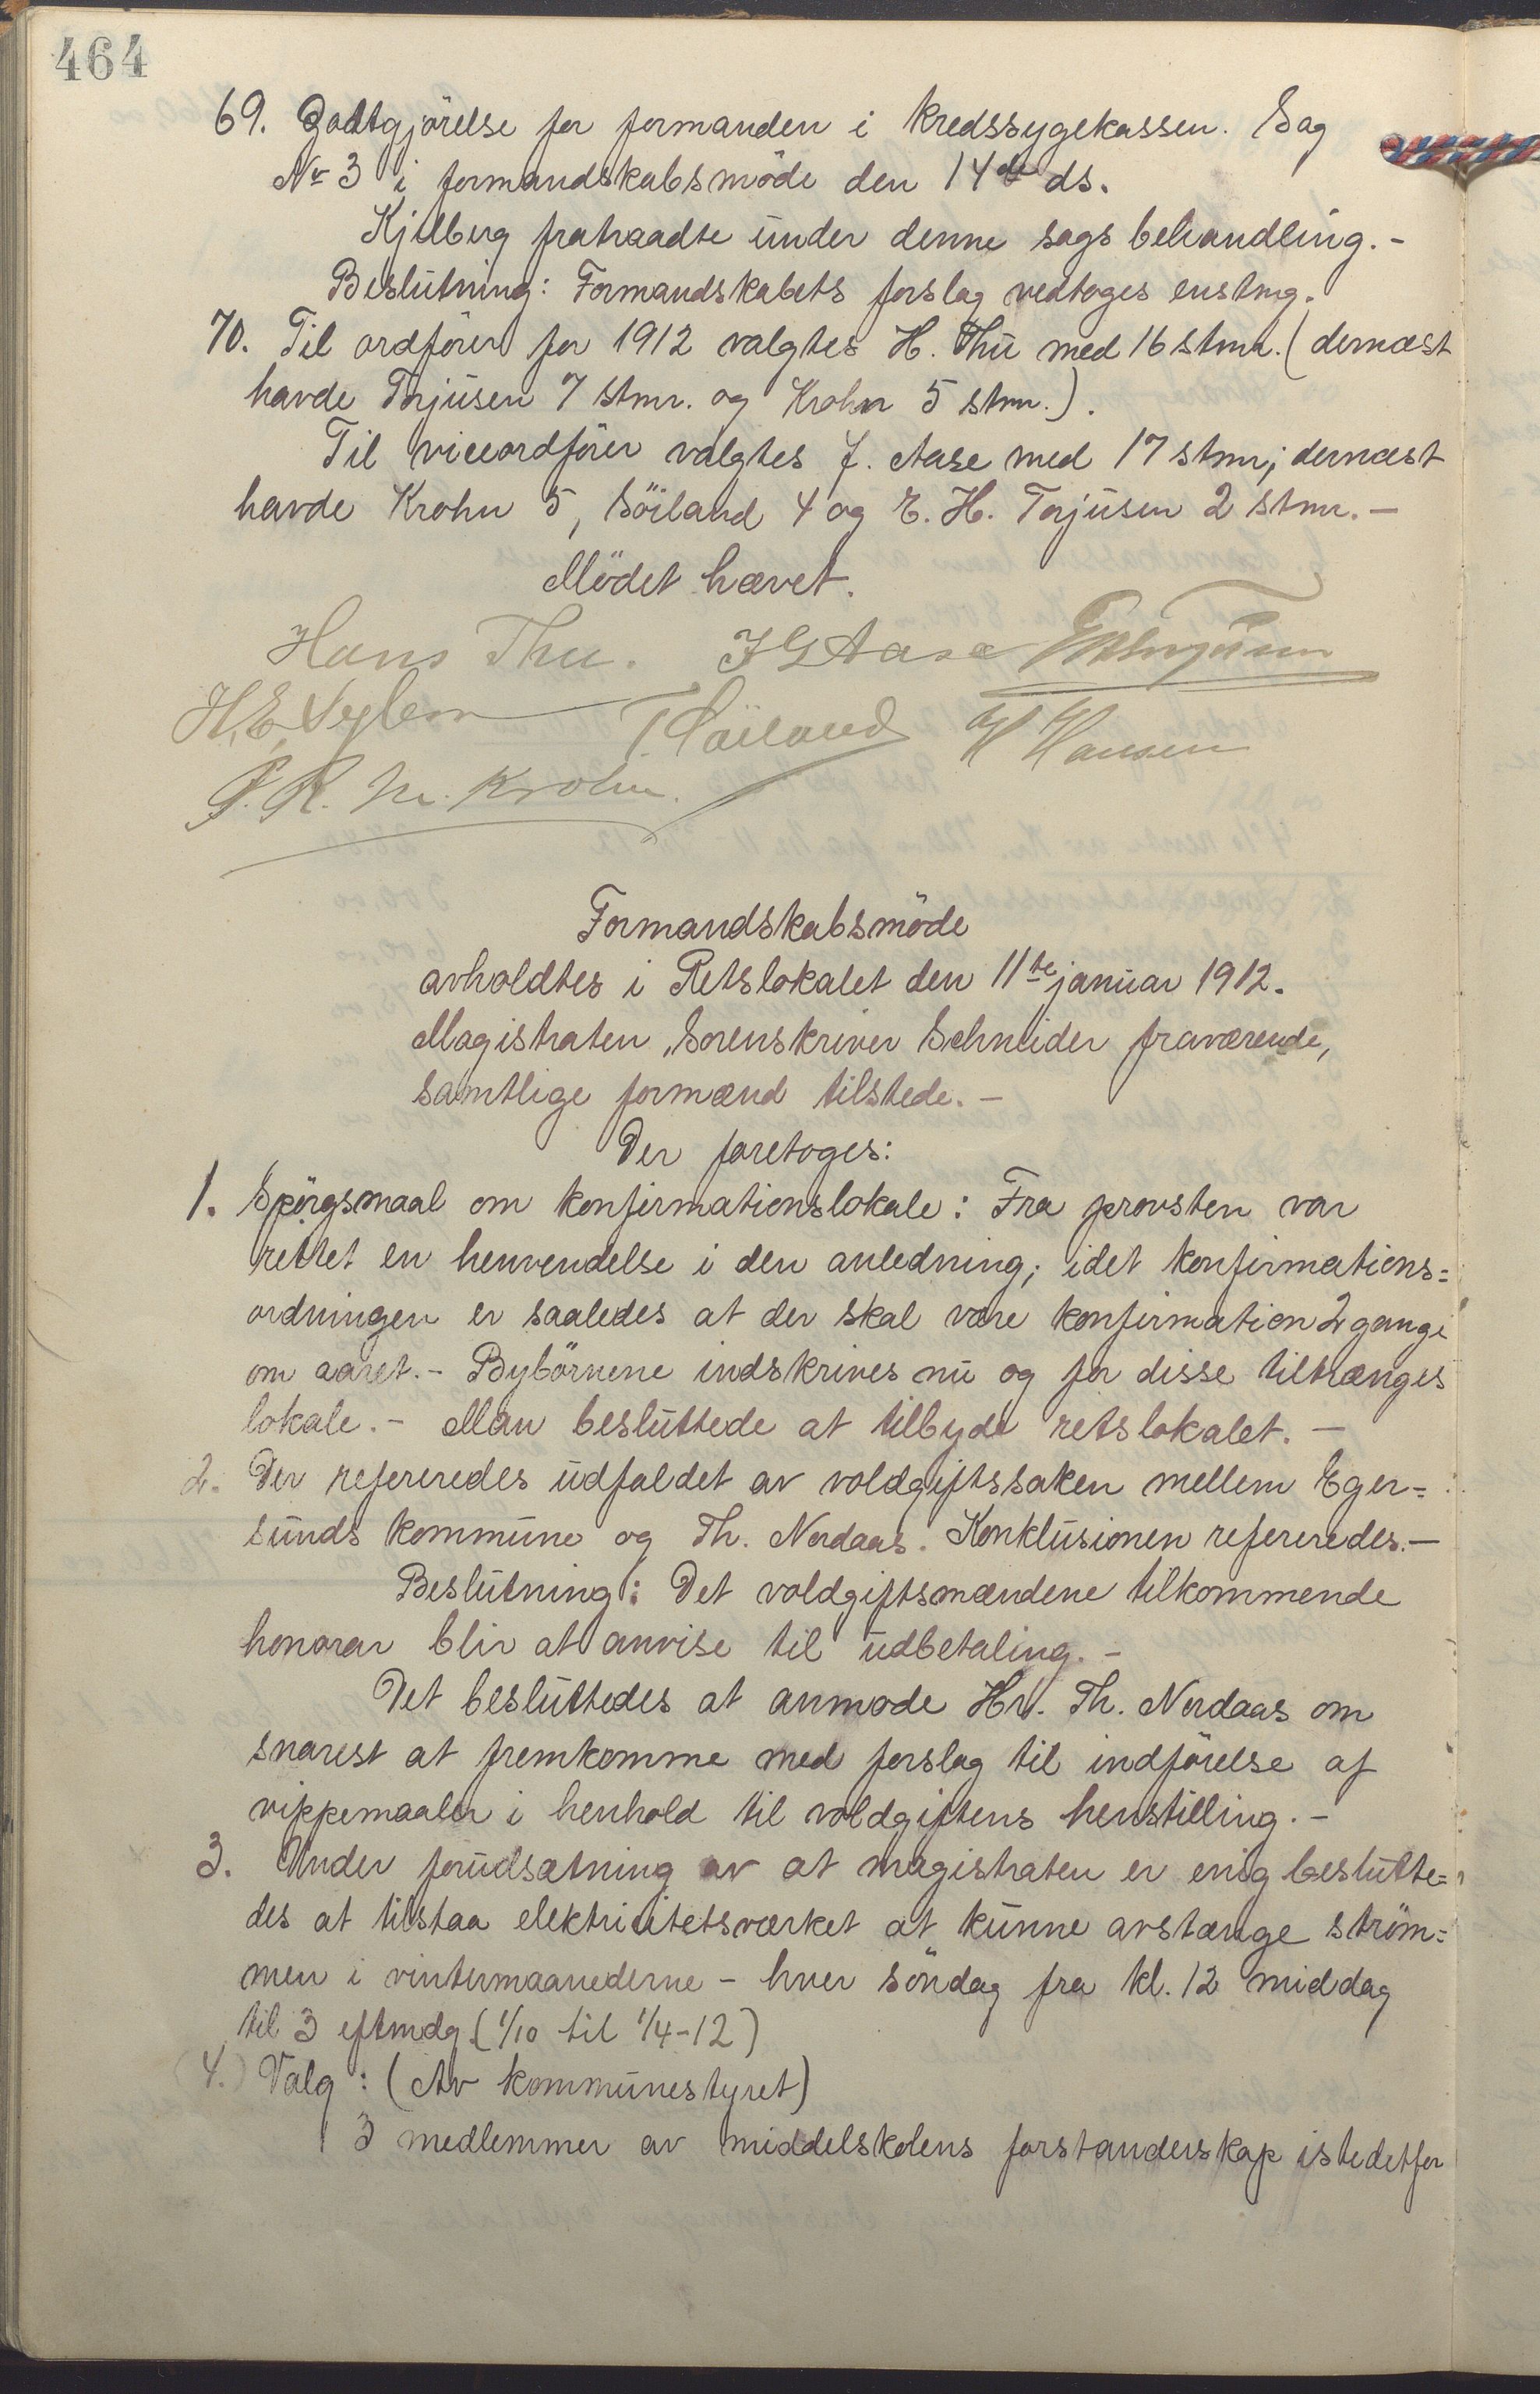 464
69. Godtgjörelse for formanden i kredssygekassen. Sag
Nr 3 i formandskabsmöde den 14de ds.
Kjelberg fratraadte under denne sags behandling. -
Beslutning: Formandskabets forslag vedtoges enstmg.
70. Til ordförer for 1912 valgtes H. Thu med 16 stmr. (dernæst
havde Torjusen 7 stmr. og Krohn 5 stmr.).
Til viceordförer valgtes J. Aase med 17 stmr; dernæst
havde Krohn 5, Söiland 4 og E. H. Torjusen 2 stmr. -
Mödet hævet.
Hans Thu. J G Aase EHTorjusen
H. E. T Söiland Hansen
P. R. M. Krohn.
Formandskabsmöde
avholdtes i Retslokalet den 11te januar 1912.
Magistraten, Sorenskriver Schneider fraværende,
samtlige formænd tilstede. -
Der foretoges:
1. Spörgsmaal om konfirmationslokale: Fra provsten var
rettet en henvendelse i den anledning; idet konfirmations=
ordningen er saaledes at der skal være konfirmation 2 gange
om aaret. - Bybörnene indskrives nu og for disse tiltrænges
lokale. - Man besluttede at tilbyde retslokalet. -
2. Der refereredes udfaldet av voldgiftssaken mellem Eger=
sunds kommune og Th. Nordaas. Konklusionen refereredes. -
Beslutning: Det voldgiftsmændene tilkommende
honorar blir at anvise til udbetaling. -
Det besluttedes at anmode Hr. Th. Nordaas om
snarest at fremkomme med forslag til indförelse af
vippemaaler i henhold til voldgiftens henstilling. -
3. Under forudsætning av at magistraten er enig beslutte=
des at tilstaa elektricitetsværket at kunne avstænge ström=
men i vintermaanederne - hver söndag fra kl. 12 middag
til 3 eftmdg. (1/10 til 1/4-12)
4.) Valg: (Av kommunestyret)
3 medlemmer av middelskolens forstanderskap istedetfor